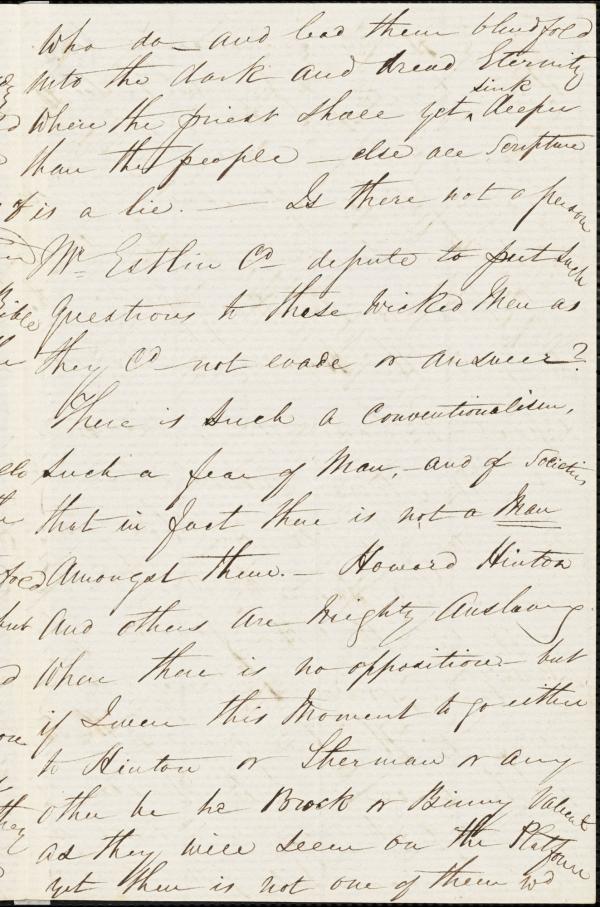 who do — and lead them blindfold
into the dark and dread Eternity
where the priest shall yet sink deeper
than the people — else all Scripture
is a lie. — Is there not a person
Mr Estlin Cd depute to put such
questions to these wicked Men as
they Cd not evade or answer?
There is such a Conventionalism,
such a fear of Man, — and of Societies
that in fact there is not a Man
Amongst them. — Howard Hinton
And others are mighty Anslavery
when there is no opposition — but
if I were this Moment to go either
to Hinton or Sherman or any
other be he Brock or Binney Valiant
as they will seem on the Platform
yet there is not one of them wd